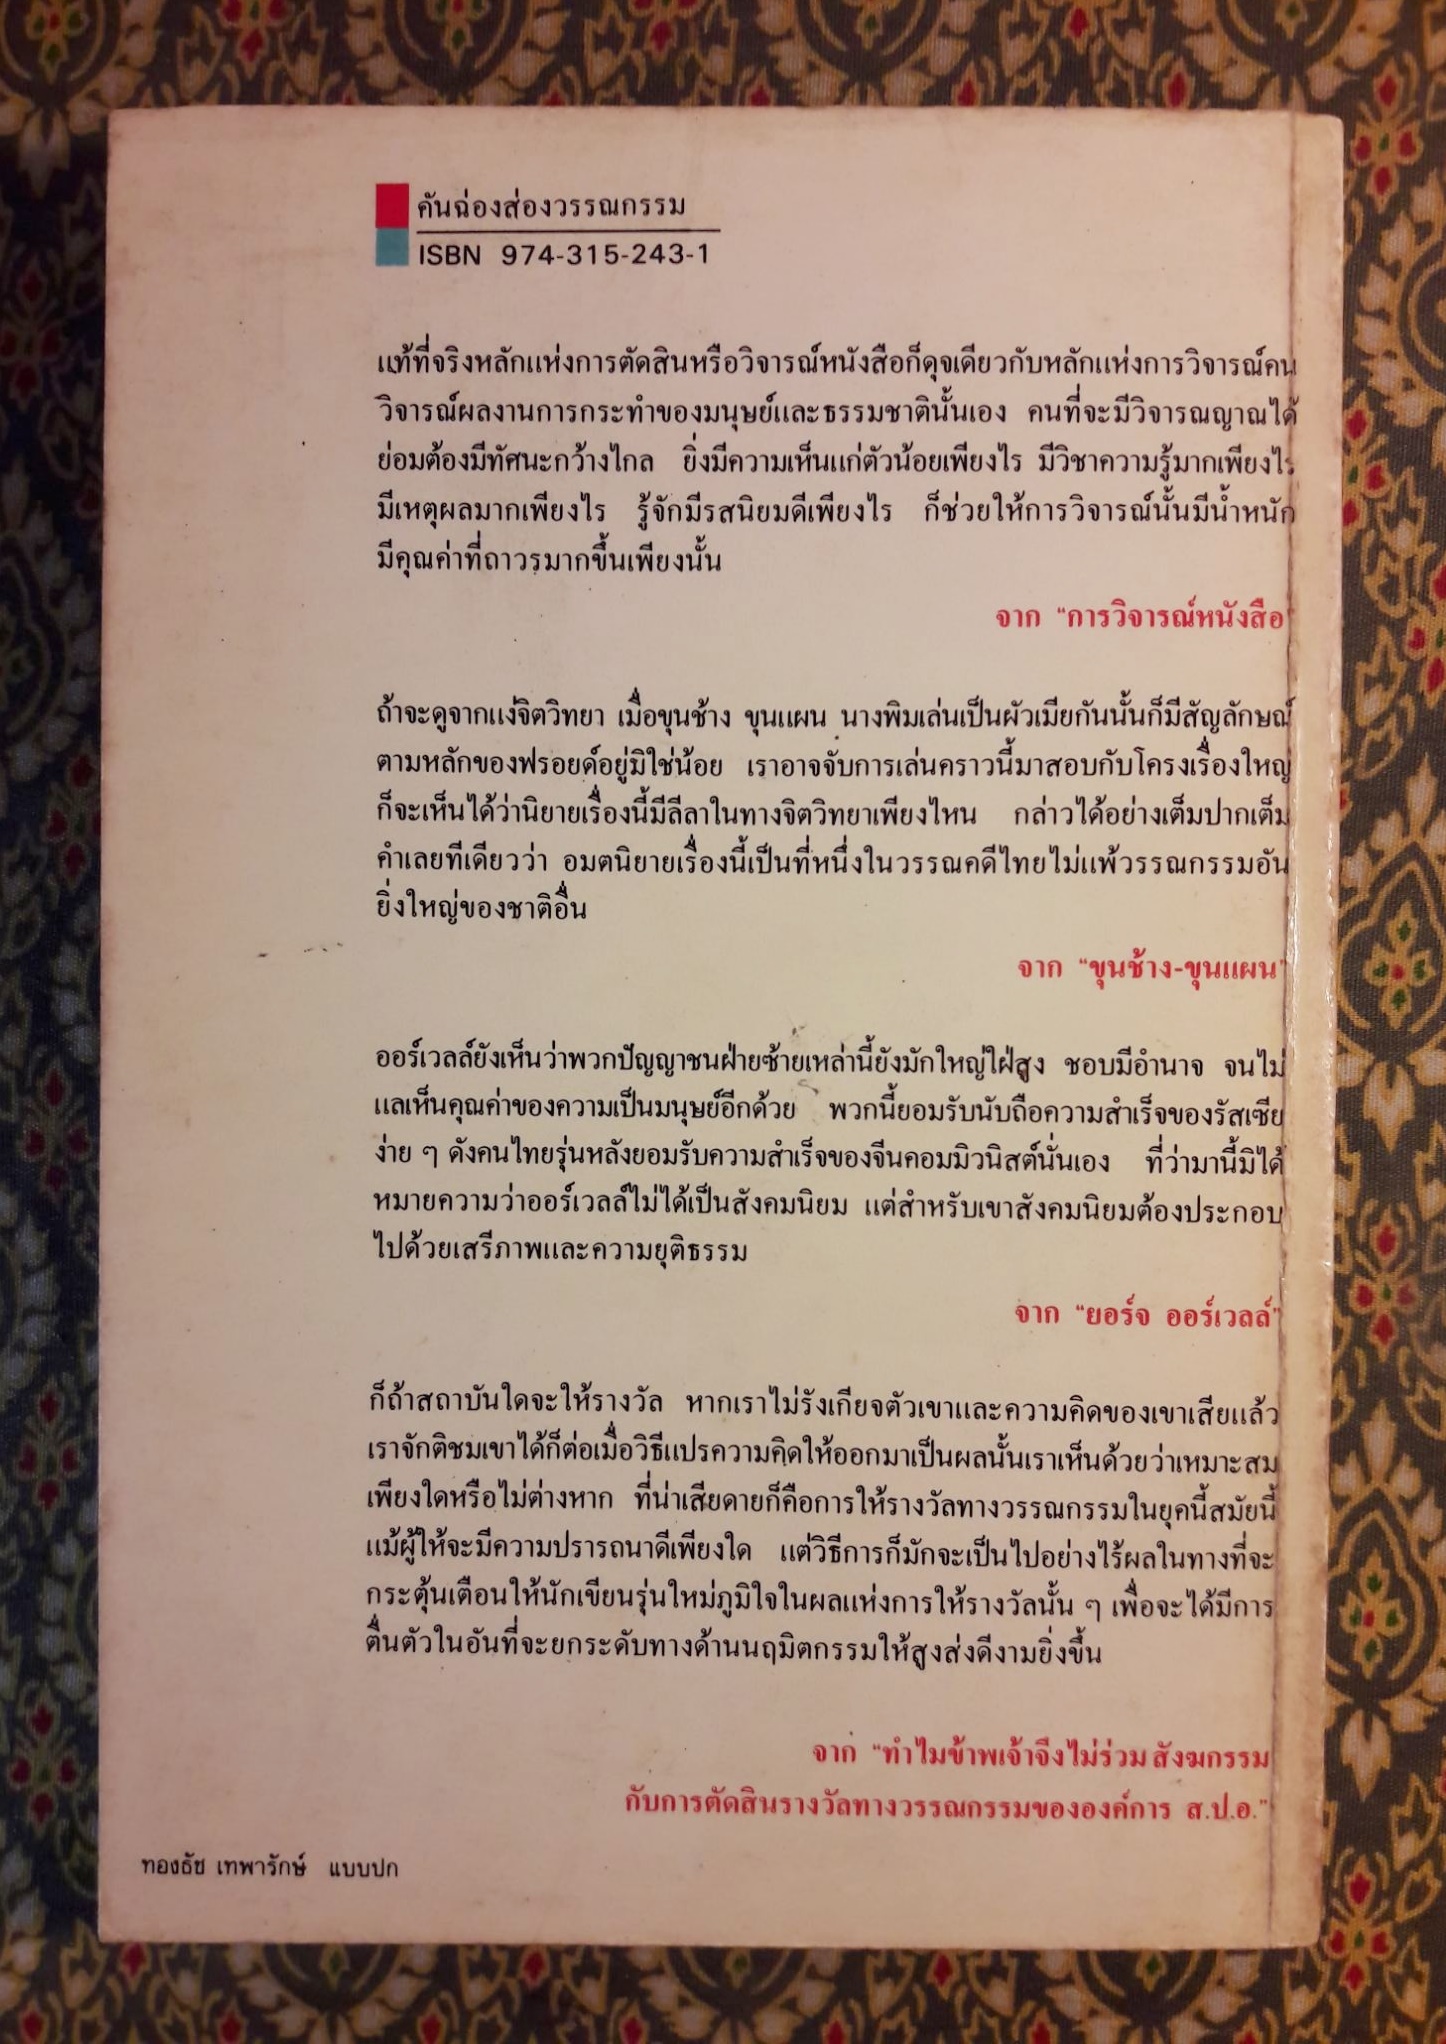 คันฉ่องส่องวรรณกรรม
ISBN 974-315-243-1
แท้ที่จริงหลักแห่งการตัดสินหรือวิจารณ์หนังสือก็ดุจเดียวกับหลักแห่งการวิจารณ์คน
วิจารณ์ผลงานการกระทำของมนุษย์และธรรมชาตินั้นเอง คนที่จะมีวิจารณญาณได้
ย่อมต้องมีทัศนะกว้างไกล ยิ่งมีความเห็นแก่ตัวน้อยเพียงไร มีวิชาความรู้มากเพียงไร
มีเหตุผลมากเพียงไร รู้จักมีรสนิยมดีเพียงไร ก็ช่วยให้การวิจารณ์นั้นมีน้ำหนัก
มีคุณค่าที่ถาวรมากขึ้นเพียงนั้น
จาก "การวิจารณ์หนังสือ"
ถ้าจะดูจากแง่จิตวิทยา เมื่อขุนช้าง ขุนแผน นางพิมเล่นเป็นผัวเมียกันนั้นก็มีสัญลักษณ์
ตามหลักของฟรอยด์อยู่มิใช่น้อย เราอาจจับการเล่นคราวนี้มาสอบกับโครงเรื่องใหญ่
ก็จะเห็นได้ว่านิยายเรื่องนี้มีลีลาในทางจิตวิทยาเพียงไหน กล่าวได้อย่างเต็มปากเต็ม
คำเลยทีเดียวว่า อมตนิยายเรื่องนี้เป็นที่หนึ่งในวรรณคดีไทยไม่แพ้วรรณกรรมอัน
ยิ่งใหญ่ของชาติอื่น
จาก "ขุนช้าง-ขุนแผน"
ออร์เวลล์ยังเห็นว่าพวกปัญญาชนฝ่ายซ้ายเหล่านี้ยังมักใหญ่ใฝ่สูง ชอบมีอำนาจ จนไม่
แลเห็นคุณค่าของความเป็นมนุษย์อีกด้วย พวกนี้ยอมรับนับถือความสำเร็จของรัสเซีย
ง่าย ๆ ดังคนไทยรุ่นหลังยอมรับความสำเร็จของจีนคอมมิวนิสต์นั่นเอง ที่ว่ามานี้มิได้
หมายความว่าออร์เวลล์ไม่ได้เป็นสังคมนิยม แต่สำหรับเขาสังคมนิยมต้องประกอบ
ไปด้วยเสรีภาพและความยุติธรรม
จาก "ยอร์จ ออร์เวลล์"
ก็ถ้าสถาบันใดจะให้รางวัล หากเราไม่รังเกียจตัวเขาและความคิดของเขาเสียแล้ว
เราจักติชมเขาได้ก็ต่อเมื่อวิธีแปรความคิดให้ออกมาเป็นผลนั้นเราเห็นด้วยว่าเหมาะสม
เพียงใดหรือไม่ต่างหาก ที่น่าเสียดายก็คือการให้รางวัลทางวรรณกรรมในยุคนี้สมัยนี้
แม้ผู้ให้จะมีความปรารถนาดีเพียงใด แต่วิธีการก็มักจะเป็นไปอย่างไร้ผลในทางที่จะ
กระตุ้นเตือนให้นักเขียนรุ่นใหม่ภูมิใจในผลแห่งการให้รางวัลนั้น ๆ เพื่อจะได้มีการ
ตื่นตัวในอันที่จะยกระดับทางด้านนฤมิตกรรมให้สูงส่งดีงามยิ่งขึ้น
จาก "ทำไมข้าพเจ้าจึงไม่ร่วมสังฆกรรม
กับการตัดสินรางวัลทางวรรณกรรมขององค์การ ส.ป.อ."
ทองธัช เทพารักษ์ แบบปก